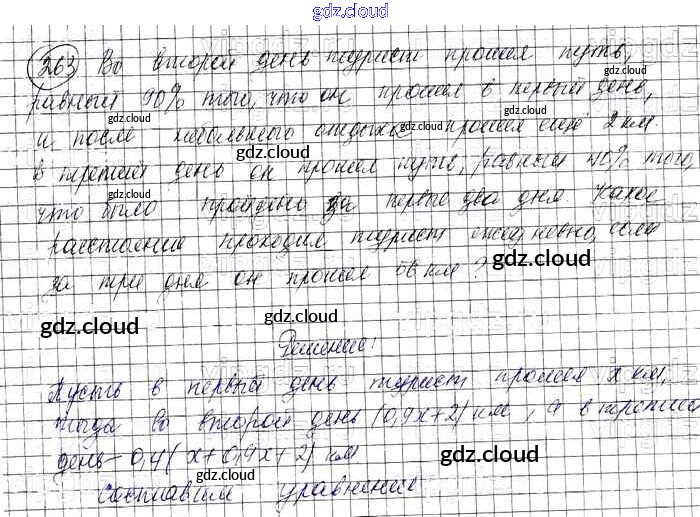 gdz.cloud
263 Во второй день турист прошел путь,
равный 90% того, что он прошел в первый день,
и после небольшого отдыха прошел еще 2 км.
В третий день он прошел путь, равный 40% того,
что было пройдено за первые два дня. Какое
расстояние проходил турист ежедневно, если
за три дня он прошел 56 км?
Решение:
Пусть в первый день турист прошел x км,
тогда во второй день (0,9x+2) км, а в третий
день - 0,4(x+0,9x+2) км
Составим уравнение
gdz.cloud
gdz.cloud
gdz.cloud
gdz.cloud
gdz.cloud
gdz.cloud
gdz.cloud
gdz.cloud
gdz.cloud
gdz.cloud
gdz.cloud
gdz.cloud